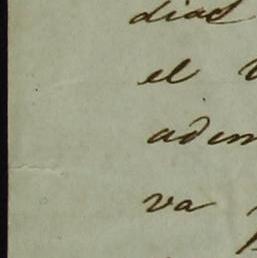 dias
el
adem
va